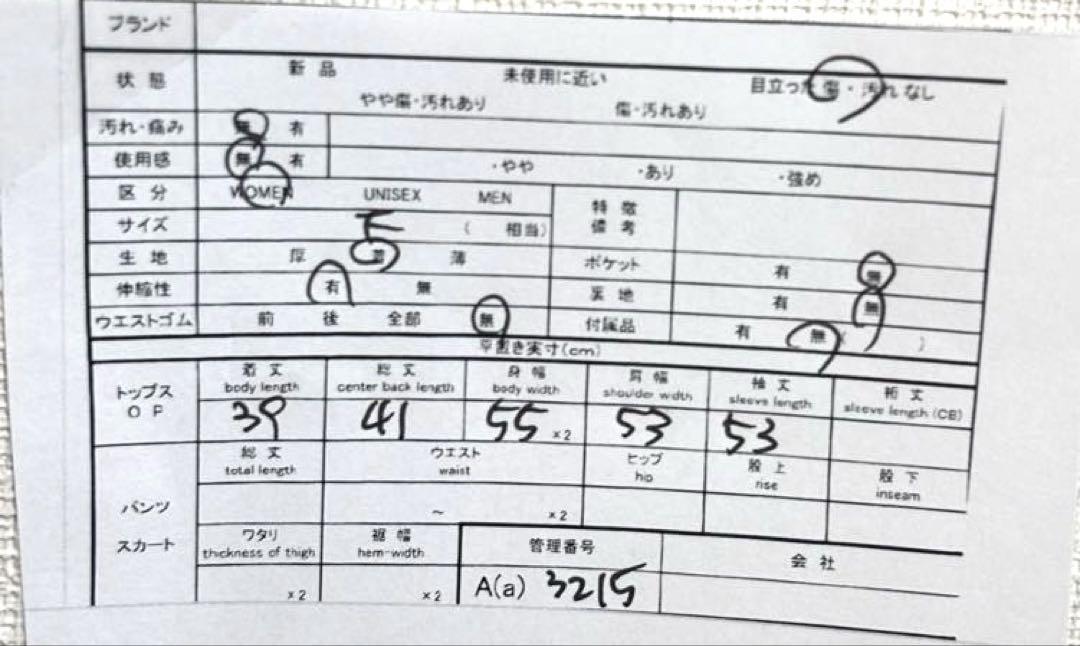 ブランド
状態 新品 未使用に近い 目立った傷・汚れなし
やや傷・汚れあり 傷・汚れあり
汚れ・痛み 無 有
使用感 無 有 ・やや ・あり ・強め
区分 WOMEN UNISEX MEN 特徴
備考
サイズ F ( 相当)
生地 厚 普 薄 ポケット 有 無
伸縮性 有 無 裏地 有 無
ウエストゴム 前 後 全部 無 付属品 有 無 ( )
平置き実寸(cm)
トップス
OP
着丈 総丈 身幅 肩幅 袖丈 裄丈
body length center back length body width shoulder width sleeve length sleeve length (CB)
39 41 55 x2 53 53
パンツ
スカート
総丈 ウエスト ヒップ 股上 股下
total length waist hip rise inseam
~ x2
ワタリ 裾幅 管理番号 会社
thickness of thigh hem-width
x2 x2 A(a) 3215